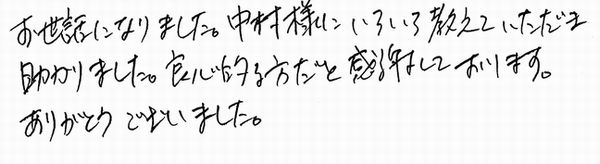 お世話になりました。中村様にいろいろ教えていただき
助かりました。良心的な方だと感謝しております。
ありがとうございました。